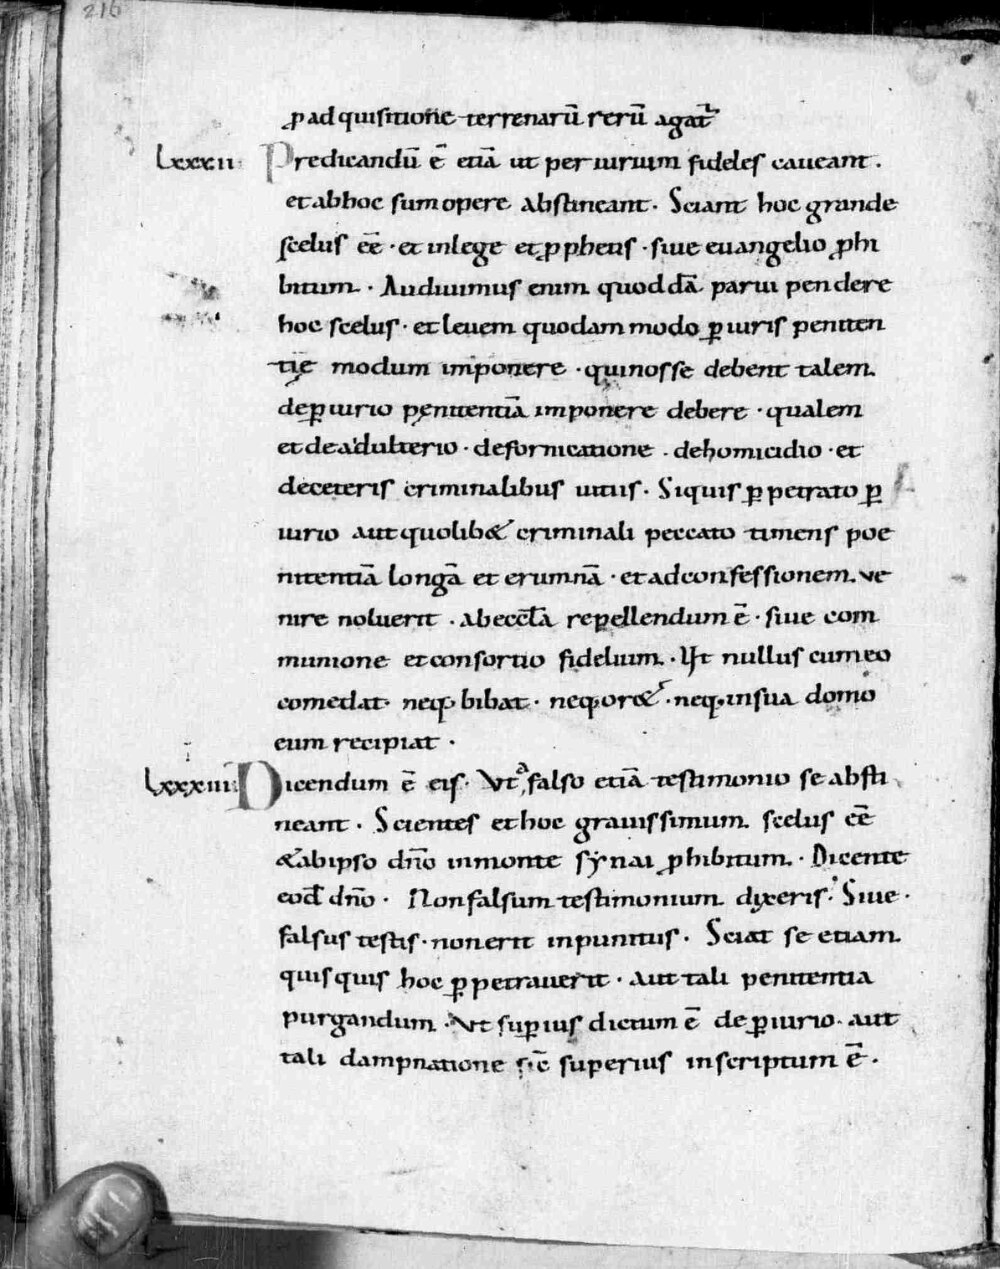 216
ꝓ adquisitione terrenarū rerū agat᷑
Lxxxii· Predicandū ē etiā ut periurium fideles caueant .
et ab hoc sum opere abstineant . Sciant hoc grande
scelus eē · et in lege et ꝓphetis · siue euangelio ꝓhi
bitum . Audiuimus enim quosdā parui pendere
hoc scelus · et leuem quodam modo ꝑiuris peniten
tię modum imponere · qui nosse debent talem
de ꝑiurio penitentiā imponere debere · qualem
et de adulterio · de fornicatione . de homicidio · et
de ceteris criminalibus uitiis . Siquis ꝑpetrato ꝑ
iurio aut quolib& criminali peccato timens poe
nitentiā longā et erumnā · et ad confessionem ve
nire noluerit . ab ecc̄la repellendum ē · siue com
munione et consortio fidelium . Ut nullus cum eo
comedat · neq; bibat · neq; or& · neq; in sua domo
eum recipiat .
Lxxxiii· Dicendum ē eis . Ut a falso etiā testimonio se absti
neant . Scientes et hoc grauissimum scelus eē
& ab ipso dn̄o in monte synai ꝓhibitum . Dicente
eod̄ dn̄o . Non falsum testimonium dixeris . Siue .
falsus testis · non erit inpunitus . Sciat se etiam
quisquis hoc ꝑpetrauerit . aut tali penitentia
purgandum . Ut suꝑius dictum ē de ꝑiurio . aut
tali dampnatione sic superius inscriptum ē .